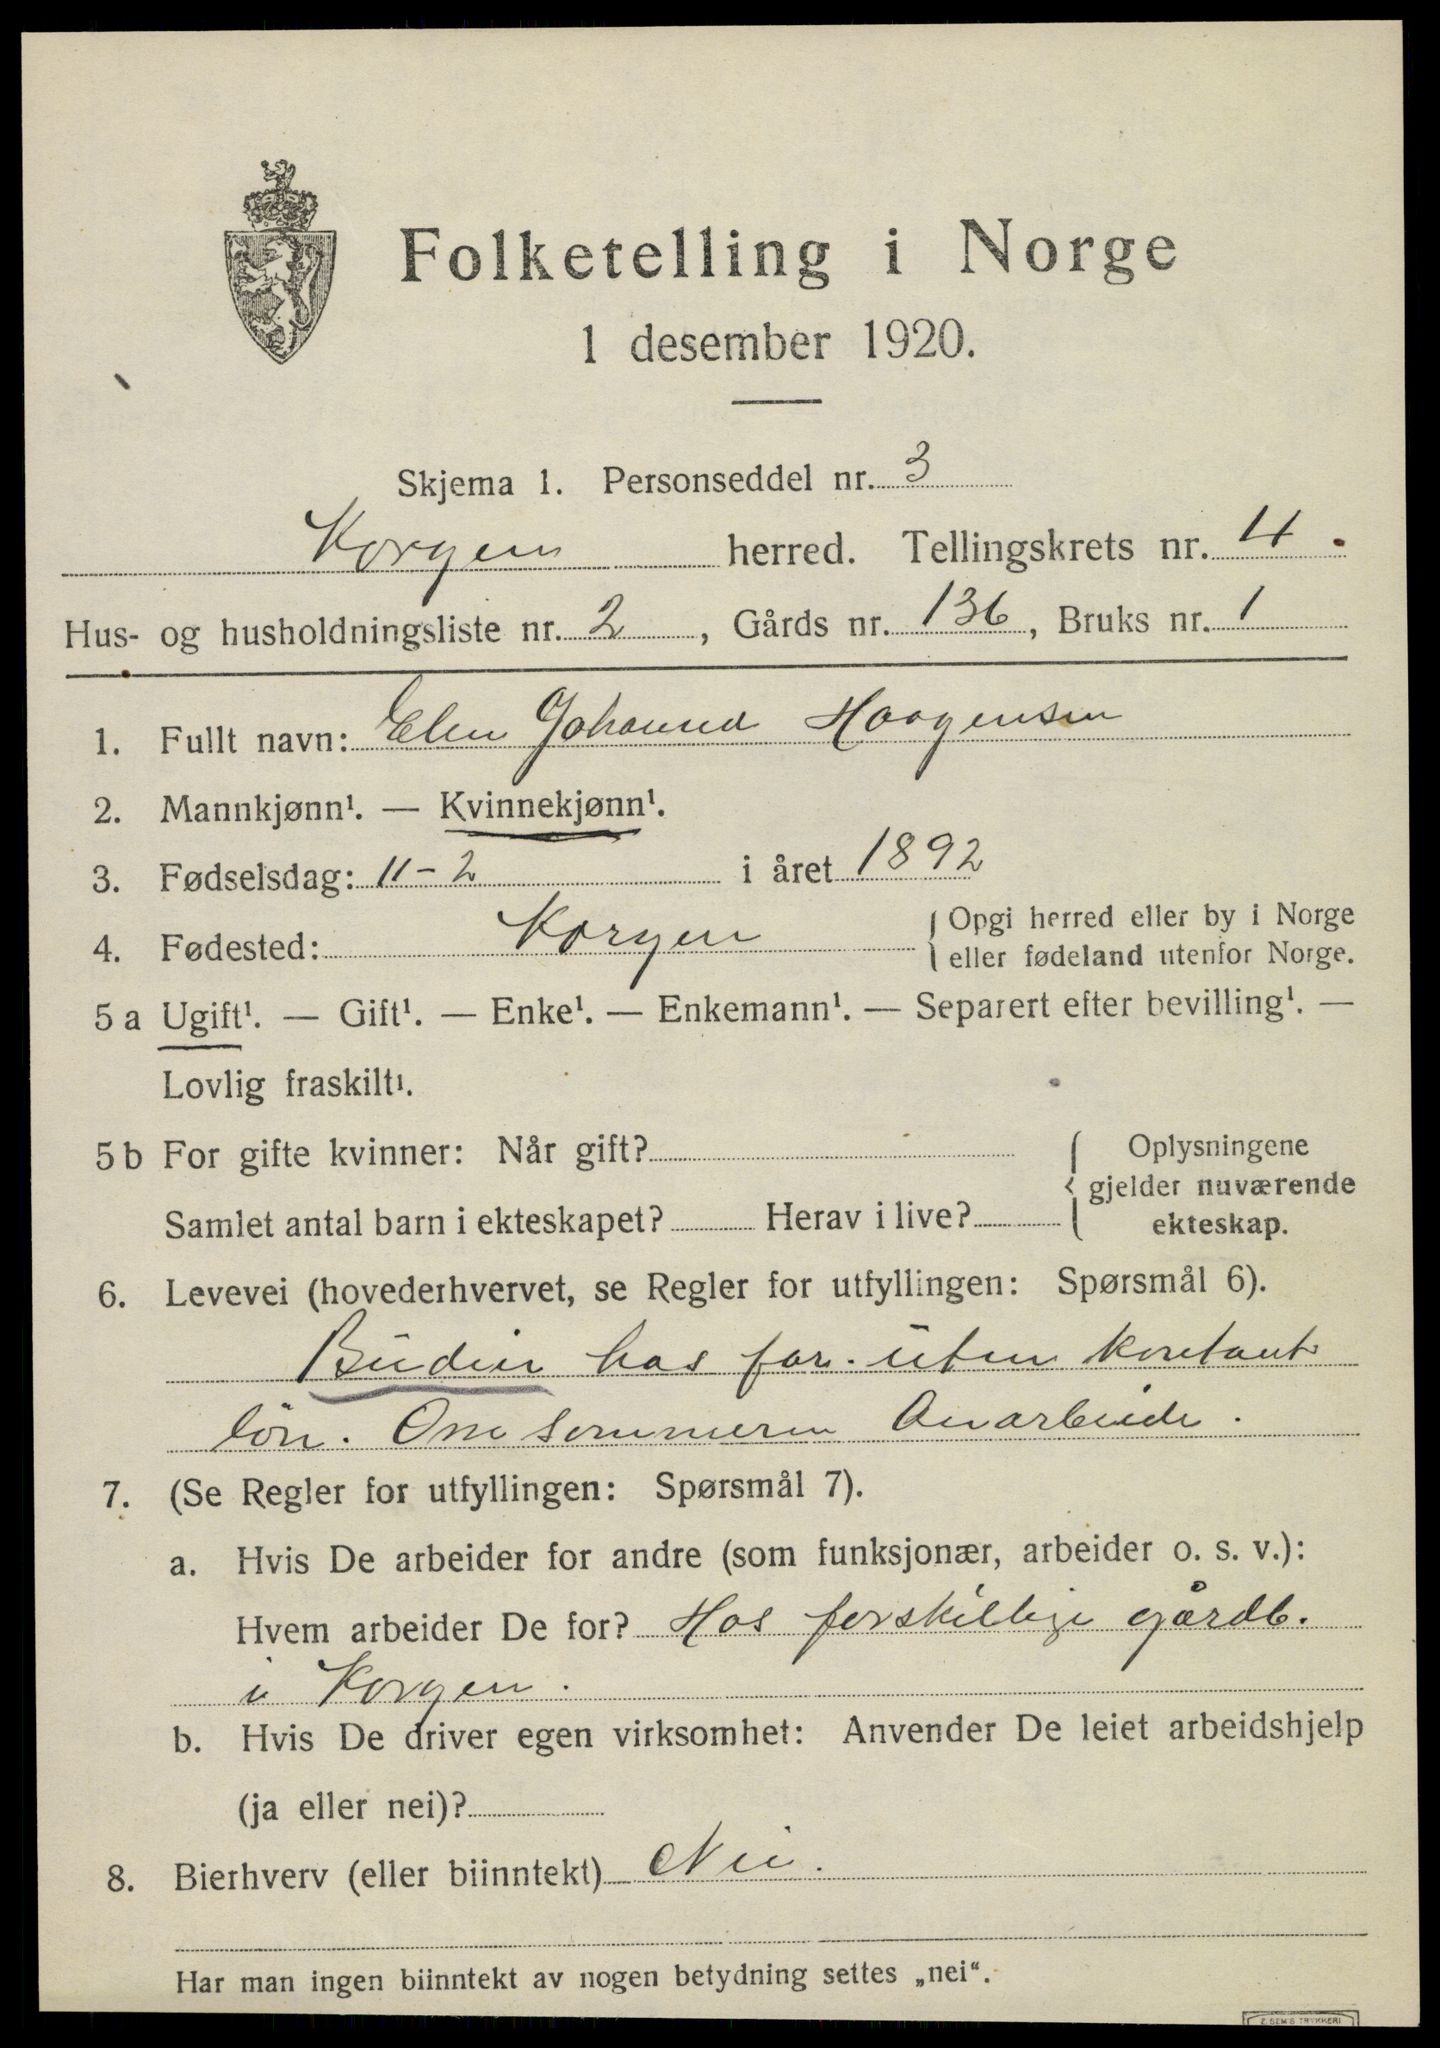 Folketelling i Norge
1 desember 1920.
Skjema 1. Personseddel nr. 3
Korgen herred. Tellingskrets nr. 4.
Hus- og husholdningsliste nr. 2, Gårds nr. 136, Bruks nr. 1
1. Fullt navn: Elen Johanna Haagensen
2. Mannkjønn¹. — Kvinnekjønn¹.
3. Fødselsdag: 11-2 i året 1892
4. Fødested: Korgen { Opgi herred eller by i Norge
eller fødeland utenfor Norge.
5 a Ugift¹. — Gift¹. — Enke¹. — Enkemann¹. — Separert efter bevilling¹. —
Lovlig fraskilt¹.
5 b For gifte kvinner: Når gift? { Oplysningene
gjelder nuværende
Samlet antal barn i ekteskapet? Herav i live? ekteskap.
6. Levevei (hovederhvervet, se Regler for utfyllingen: Spørsmål 6).
Budeie hos far. uten kontant
lön. Om sommeren
7. (Se Regler for utfyllingen: Spørsmål 7).
a. Hvis De arbeider for andre (som funksjonær, arbeider o. s. v.):
Hvem arbeider De for? Hos forskillige gårdb.
i Korgen.
b. Hvis De driver egen virksomhet: Anvender De leiet arbeidshjelp
(ja eller nei)?
8. Bierhverv (eller biinntekt) Nei.
Har man ingen biinntekt av nogen betydning settes „nei“.
E. SEM'S TRYKKERI